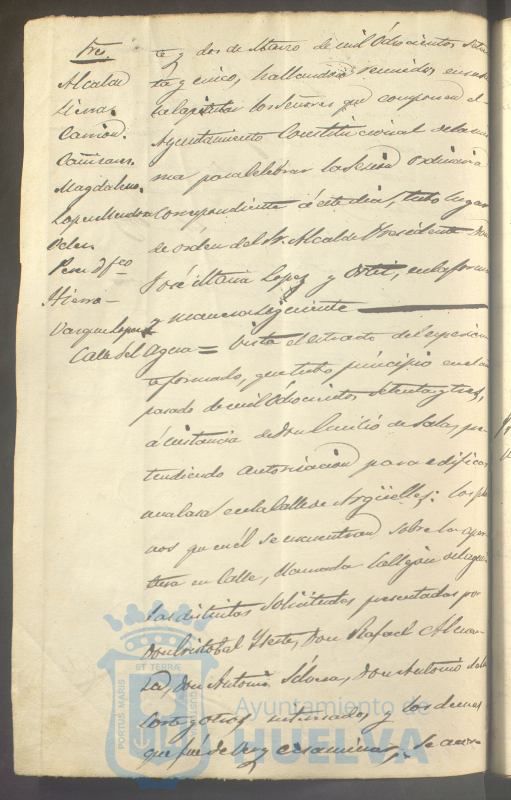 Sres.
Alcalde
Sierra.
Carrion.
Cañizares.
Magdaleno.
Lopez Mendoza
Perez D. Fco
Hierro
Vazquez Lopez
Calle del Agua =
te y dos de Marzo de mil ochocientos seten
ta y cinco, hallandose reunidos en su sa
la Capitular los Señores que componen el
Ayuntamiento Constitucional de la mis
ma para celebrar la Sesion Ordinaria
correspondiente á este dia, tubo lugar
de orden del Sr. Alcalde Presidente Don
José Maria Lopez y Ortiz, en la forma
y manera siguiente
Vista el estado del espedien
te formado, que tubo principio en el año
pasado de mil ochocientos setenta y tres,
á instancia de Don Emilio de Salas, pre
tendiendo autorizacion para edificar
una casa en la Calle de Argüelles: los pla
nos que en él se encuentran sobre la aper
tura en Calle, llamada Callejon del Agua
las distintas solicitudes presentadas por
Don Cristobal Don Rafael
Don Antonio Don Antonio de la
Corte y otros interesados, y los demas
que fué de ver y ecsaminar, se acor
PORTUS MARIS
ET TERRÆ
CUSTODIA
Ayuntamiento de
HUELVA